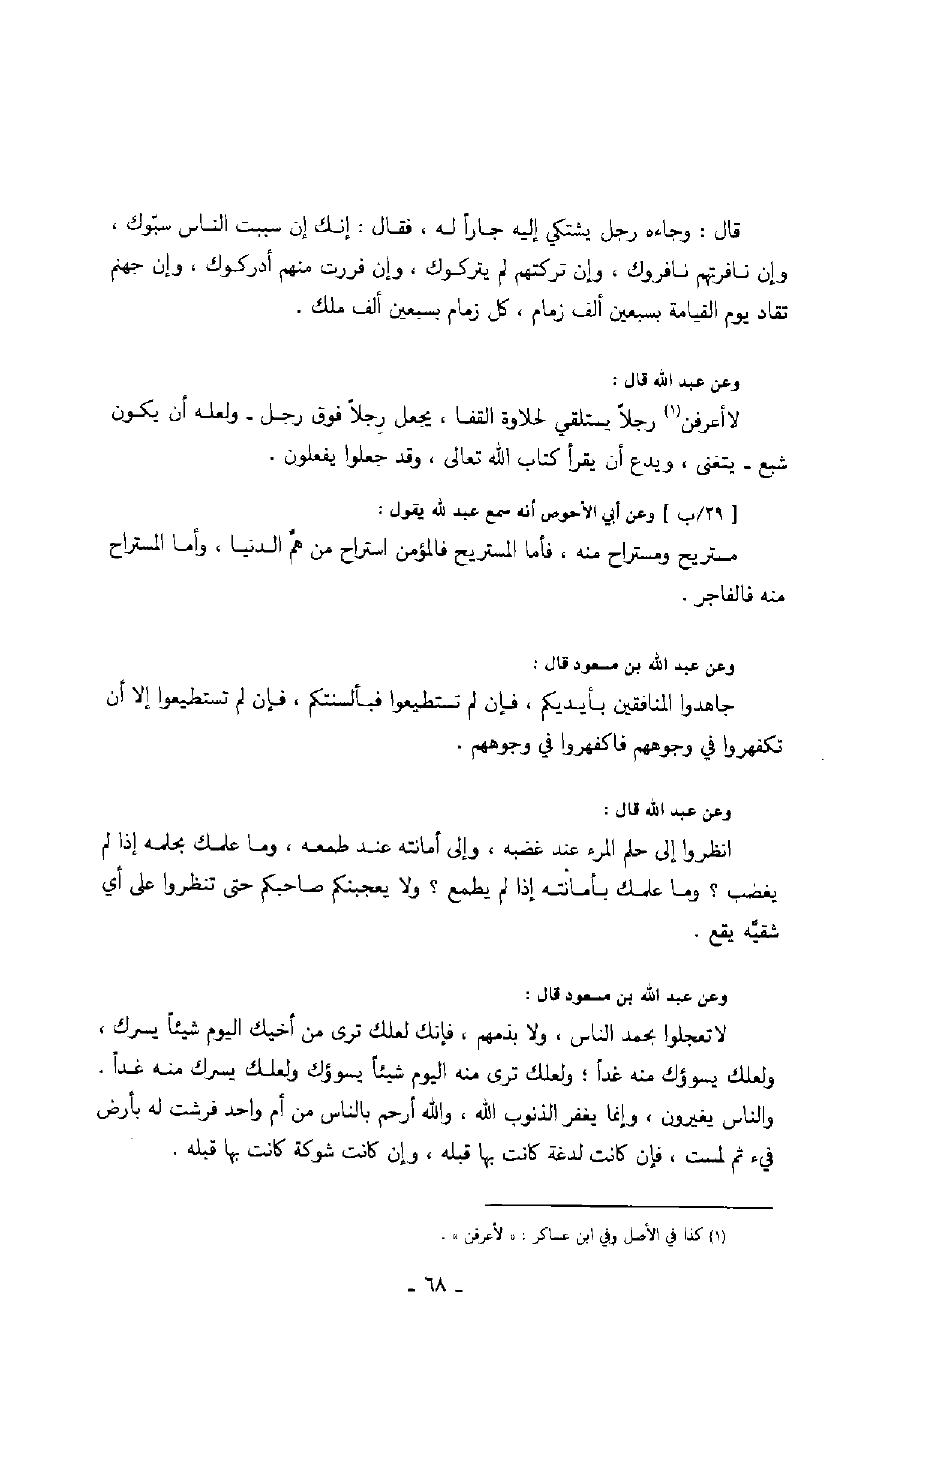 قال : وجاءه رجل يشتكي إليه جاراً له ، فقال : إنك إن سببت الناس سبّوك ،
وإن نافرتهم نافروك ، وإن تركتهم لم يتركوك ، وإن فررت منهم أدركوك ، وإن جهنم
تقاد يوم القيامة بسبعين ألف زمام ، كل زمام بسبعين ألف ملك .
وعن عبد الله قال :
لاأعرفن(١) رجلاً يستلقي لحلاوة القفا ، يجعل رجلاً فوق رجل ـ ولعله أن يكون
شبع ـ يتغنى ، ويدع أن يقرأ كتاب الله تعالى ، وقد جعلوا يفعلون .
[ ٢٩/ب ] وعن أبي الأحوص أنه سمع عبد لله يقول :
مستريح ومستراح منه ، فأما المستريح فالمؤمن استراح من همّ الدنيا ، وأما المستراح
منه فالفاجر .
وعن عبد الله بن مسعود قال :
جاهدوا المنافقين بأيديكم ، فإن لم تستطيعوا فبألسنتكم ، فإن لم تستطيعوا إلا أن
تكفهروا في وجوههم فاكفهروا في وجوههم .
وعن عبد الله قال :
انظروا إلى حلم المرء عند غضبه ، وإلى أمانته عند طمعه ، وما علمك بحلمه إذا لم
يغضب ؟ وما علمك بأمانته إذا لم يطمع ؟ ولا يعجبنكم صاحبكم حتى تنظروا على أي
شقيّه يقع .
وعن عبد الله بن مسعود قال :
لاتعجلوا بحمد الناس ، ولا بذمهم ، فإنك لعلك ترى من أخيك اليوم شيئاً يسرك ،
ولعلك يسوؤك منه غداً ؛ ولعلك ترى منه اليوم شيئاً يسوؤك ولعلك يسرك منه غداً .
والناس يغيرون ، وإنما يغفر الذنوب الله ، والله أرحم بالناس من أم واحد فرشت له بأرض
فيء ثم لمست ، فإن كانت لدغة كانت بها قبله ، وإن كانت شوكة كانت بها قبله .
(١) كذا في الأصل وفي ابن عساكر : « لأعرفن » .
ـ ٦٨ ـ